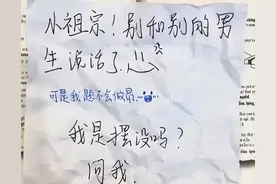 小祖宗！别和别的男
生说话了.
可是我题不会做昂...
我是摆设吗？
问我！